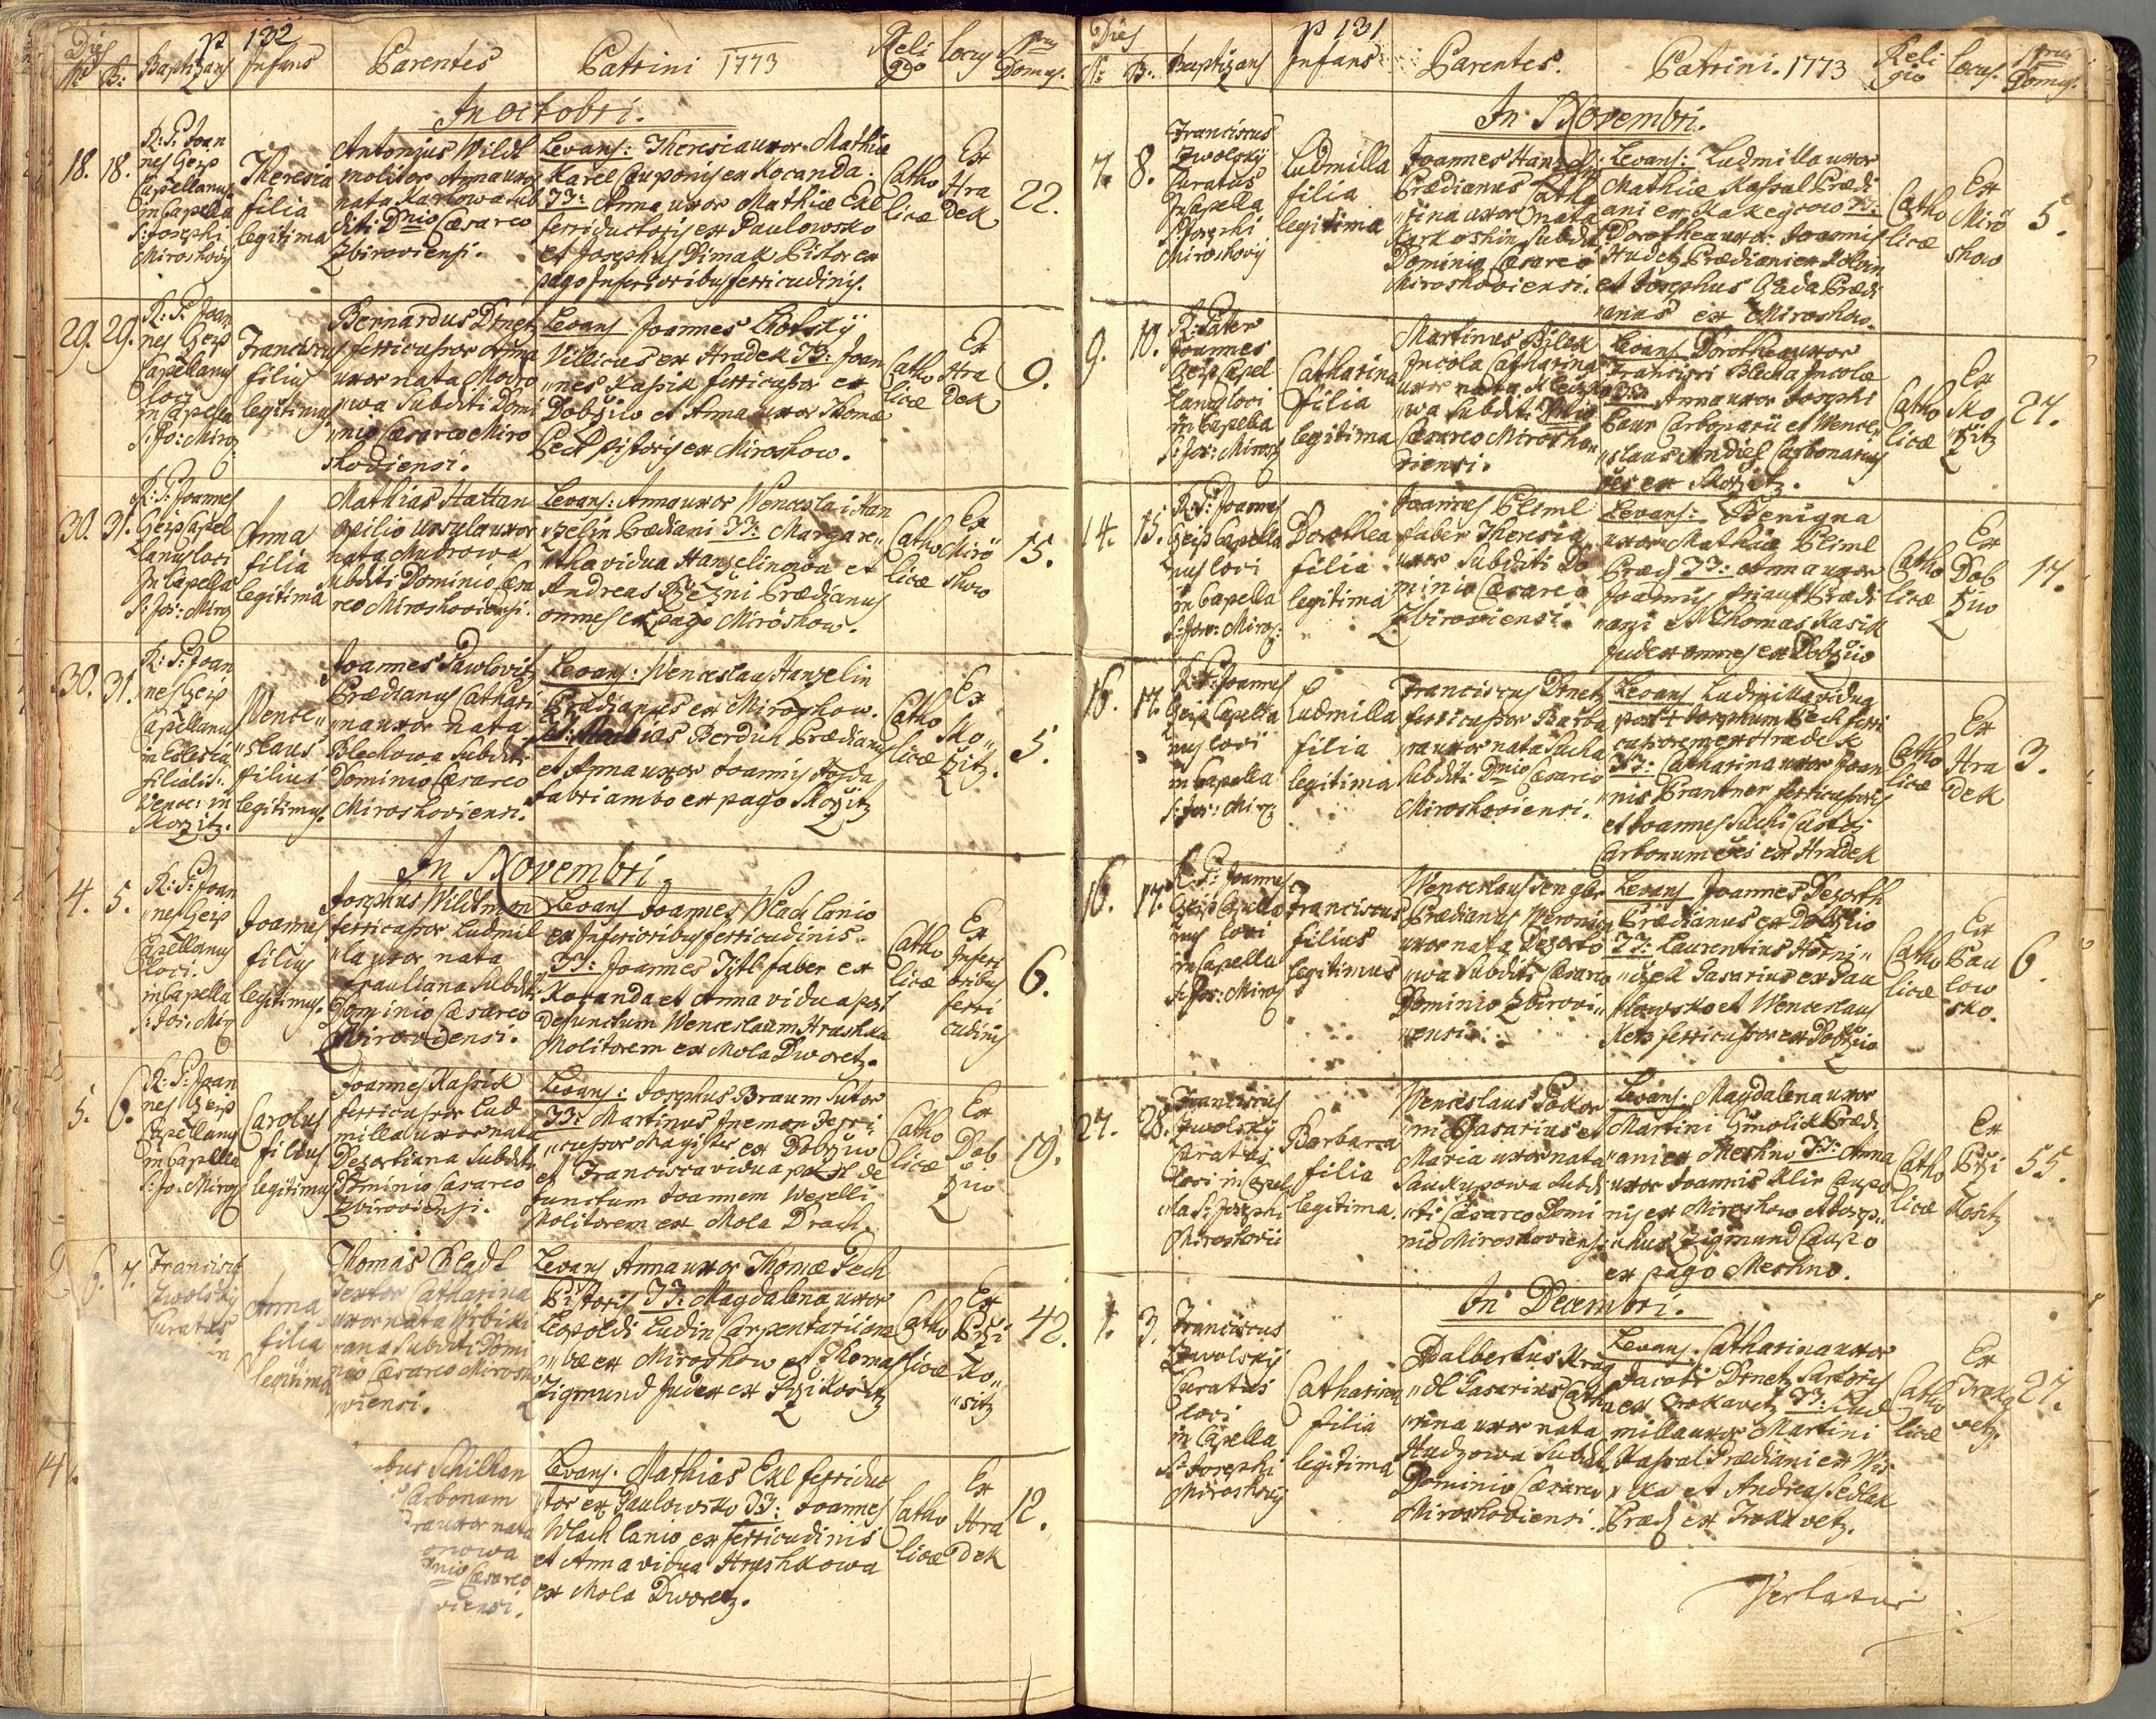 p 132
Dies
N: B:
Baptizans
Infans
Parentes
Patrini 1773
Reli
gio
locus
Nrus
Domus.
In octobri.
18. 18.
R: P: Joan
nes Geip
Capellanus
in Capella
S: Josephi
Miroshovij
Theresia
filia
legitima
Antonius Wildt
molitor Anna uxor
nata Karlowa sub
diti Dnio Cæsareo
Zbiroviensi.
Levans: Theresia uxor Mathiæ
Karel Cauponis ex Kocanda.
TT: Anna uxor Mathiæ Exl
ferriductoris ex Paulowsko
et Josephus Dimak Pistor ex
pago Inferioribus ferricudinis.
Catho
licæ
Ex
Hra
dek
22.
29. 29.
R: P: Joan
nes Geip
Capellanus
loci
in Capella
S: Jo: Miros
Franciscus
filius
legitimus
Bernardus Drnetz
ferricussor Anna
uxor nata Modro
"wa Subditi Domi
"nio Cæsareo Miro
shoviensi.
Levans Joannes Lhotskÿ
Villicus ex Hradek TT: Joan
"nes Kassik ferricussor ex
Dobžiw et Anna uxor Thomæ
Pech pistoris ex Miroshow.
Catho
licæ
Ex
Hra
dek
9.
30. 31.
R: P: Joannes
Geip Capel
lanus loci
In Capella
S: Jos: Miros
Anna
filia
legitima
Mathias Hattan
opilio Ursula uxor
nata Mudrowa
subditi Dominio Cæsa
reo Miroshoviensi.
Levans: Anna uxor Wenceslai Han
zelin Prædiani TT: Margare"
"tha vidua Hanzelinowa et
Andreas Bžezni Prædianus
omnes ex pago Miröshow.
Catho
licæ
Ex
Mirö
show
15.
30. 31.
R: P: Joan
nes Geip
Capellanus
in Eclesia
filiali S:
Wenc: in
Skoržitz.
Wence"
"slaus
filius
legitimus.
Joannes Pawlovitz
Prædianus Cathari
"na uxor nata
Blechowa Subditi
Dominio Cæsareo
Miroshoviensi.
Levans: Wenceslaus Hanzelin
Prædianus ex Miroshow.
TT: Mathias Berduh Prædianus
et Anna uxor Joannis Hayda
fabri ambo ex pago Skožitz
Catho
licæ
Ex
Sko"
žitz.
5.
In Novembri.
4. 5.
R: P: Joan
"nes Geip
Capellanus
loci:
in Capella
S: Jos: Mir
Joannes
filius
legitimus.
Josephus Wildtmon
ferricussor Ludmil
"la uxor nata
frauliana Subditi
Dominio Cæsareo
Zbiroviensi.
Levans Joannes Wlach lanio
ex Inferioribus ferricudinis.
TT: Joannes Titl faber ex
Kocanda et Anna vidua post
defunctum Wenceslaum Hrashka
Molitorem ex Mola Dworetz.
Catho
licæ
Ex
Inferi
oribus
ferri
cudinis
6.
5. 6.
R: P: Joan
nes Geip
Capellanus
in Capella
S: Jo: Miros
Carolus
filius
legitimus
Joannes Kassik
ferricussor Lud
milla uxor nata
Dezortiana Subditi
Dominio Cæsareo
Zbiroviensi.
Levans: Josephus Braum Sutor
TT: Martinus Jneman Ferri
"cussor Magister ex Dobžiw
et Francisca vidua post de
functum Joannem Weselli
Molitorem ex Mola Drach.
Catho
licæ
Ex
Dob
žiw
19.
6. 7.
Franciscus
Zwolskÿ
Curatus
Anna
filia
legitima
Thomas Chladt
Textor Catharina
uxor nata Wrbik
"rana Subditi Domi
nio Cæsareo Mirosh
"oviensi.
Levans Anna uxor Thomæ Pech
Pistoris TT: Magdalena uxor
Leopoldi Ludin Carpentarii am
"bæ ex Miroshow et Thomas
Zigmund Judex ex Pžikositz
Catho
licæ
Ex
Pži
ko"
"sitz
42.
Schilhan
Carbonum
uxor nata
onowa
Dnio Cæsareo
viensi.
Levans: Mathias Exl ferriduc
tor ex Paulowsko TT: Joannes
Wlach lanio ex ferricudinis
et Anna vidua Hrashkowa
ex Mola Dworetz.
Catho
licæ
Ex
Hra
dek
12.
p 131
Dies
N: B:
Baptizans
Infans
Parentes.
Patrini. 1773
Reli
gio
locus.
Nrus
Domus.
In Novembri.
7. 8.
Franciscus
Zwolskÿ
Curatus
In Capella
S: Josephi
Miroshovij
Ludmilla
filia
legitima
Joannes Hanzelin
Prædianus Catha
"rina uxor nata
Subditi
Dominio Cæsareo
Miroshoviensi.
Levans: Ludmilla uxor
Mathiæ Kassal Prædi
ani ex Kakeycow TT:
Dorothea uxor Joannis
Hudetz Prædiani ex
et Josephus Gada Prædi
"anus ex Miroshow.
Catho
licæ
Ex
Mirö
show
5.
9. 10.
R: Pater
Joannes
Geip Capel
lanus loci
in Capella
S: Jos: Mirosh
Catharina
filia
legitima
Martinus Bilek
Incola Catharina
uxor nata
"wa Subditi Dnio
Cæsareo Miroshoviensi.
Levans Dorothea uxor
Francisci Blecha Incolæ
TT: Anna uxor Josephi
Baur Carbonarii et Wence"
"slaus Andiel Carbonarius
oēs ex Skoržitz.
Catho
licæ
Ex
Sko
"žitz
27.
14. 15.
R: P: Joannes
Geip Capella
nus loci
in Capella
S: Jos: Miros:
Dorothea
filia
legitima
Joannes Pliml
faber Theresia
uxor Subditi Do
minio Cæsareo
Zbiroviensi.
Levans: Benigna
uxor Mathiæ Pliml
Præd TT: Anna uxor
Joannis friauf Prædi
"ani et Thomas Kasik
Judex omnes ex Dobžiw
Catho
licæ
Ex
Dob
žiw
17.
16. 17.
R: P: Joannes
Geip Capella
nus loci
in Capella
S: Jos: Mir:
Ludmilla
filia
legitima
Franciscus Drnetz
ferricussor Barba
"ra uxor nata Sucha
Subditi Dnio Cæsareo
Miroshoviensi.
Levans Ludmilla vidua
post Josephum Pech ferri
cussorem ex Hradek
TT: Catharina uxor Joan
"nis Prantner ferricussoris
et Joannes Suchi Custos
Carbonum oēs ex Hradek
Catho
licæ
Ex
Hra
dek
3.
16. 17.
R: P: Joannes
Geip Capella
nus loci
in Capella
S: Jos: Miros
Franciscus
filius
legitimus
Wenceslaus Senglr
Prædianus Weronica
uxor nata Dezorto
"wa Subditi Cæsareo
Dominio Zbirovi"
"ensi:
Levans Joannes Dezorth
Prædianus ex Dobžiw
TT: Laurentius Horni"
"ček Casarius ex Pau
"lowsko et Wenceslaus
Kets ferricussor ex Dobžiw
Catho
licæ
Ex
Pau
low
sko.
6.
27. 28.
Franciscus
Zwolskÿ
Curatus
loci in Capel
"la S: Josephi
Miroshovii
Barbara
filia
legitima.
Wenceslaus Pokor
"ni Casarius et
Maria uxor nata
Saukupowa Subdi
"ti Cæsareo Domi
nio Miroshoviensi
Levans: Magdalena uxor
Martini Hmolik Prædi
"ani ex Meshno TT: Anna
uxor Joannis Klir Caupo
nis ex Miroshow et Josep"
"hus Zigmund Caupo
ex pago Meshno.
Catho
licæ
Ex
Pži
kositz
55.
In Decembri.
1. 3.
Franciscus
Zwolskÿ
Curatus
loci
in Capella
S: Josephi
Miroshovij
Catharina
filia
legitima
Adalbertus Krag
"dl Casarius Catha
"rina uxor nata
Hudzowa Subditi
Dominio Cæsareo
Miroshoviensi.
Levans: Catharina uxor
Jacobi Drnetz Sartoris
ex Trokavetz TT: Lud
milla uxor Martini
Kassal Prædiani ex Wis
"ka et Andreas Sedlak
Præd ex Trokavetz.
Catho
licæ
Ex
Troka
vetz.
27.
Vertatur